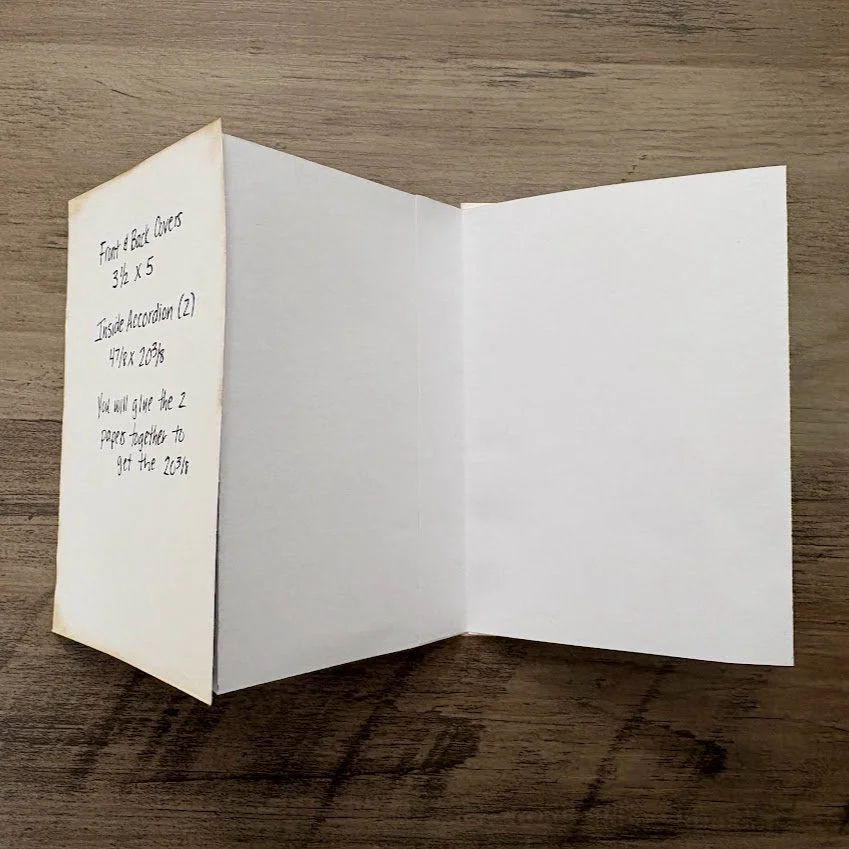 Front & Back Covers
3 1/2 X 5
Inside Accordion (2)
4 7/8 x 20 3/8
You will glue the 2
papers together to
get the 20 3/8